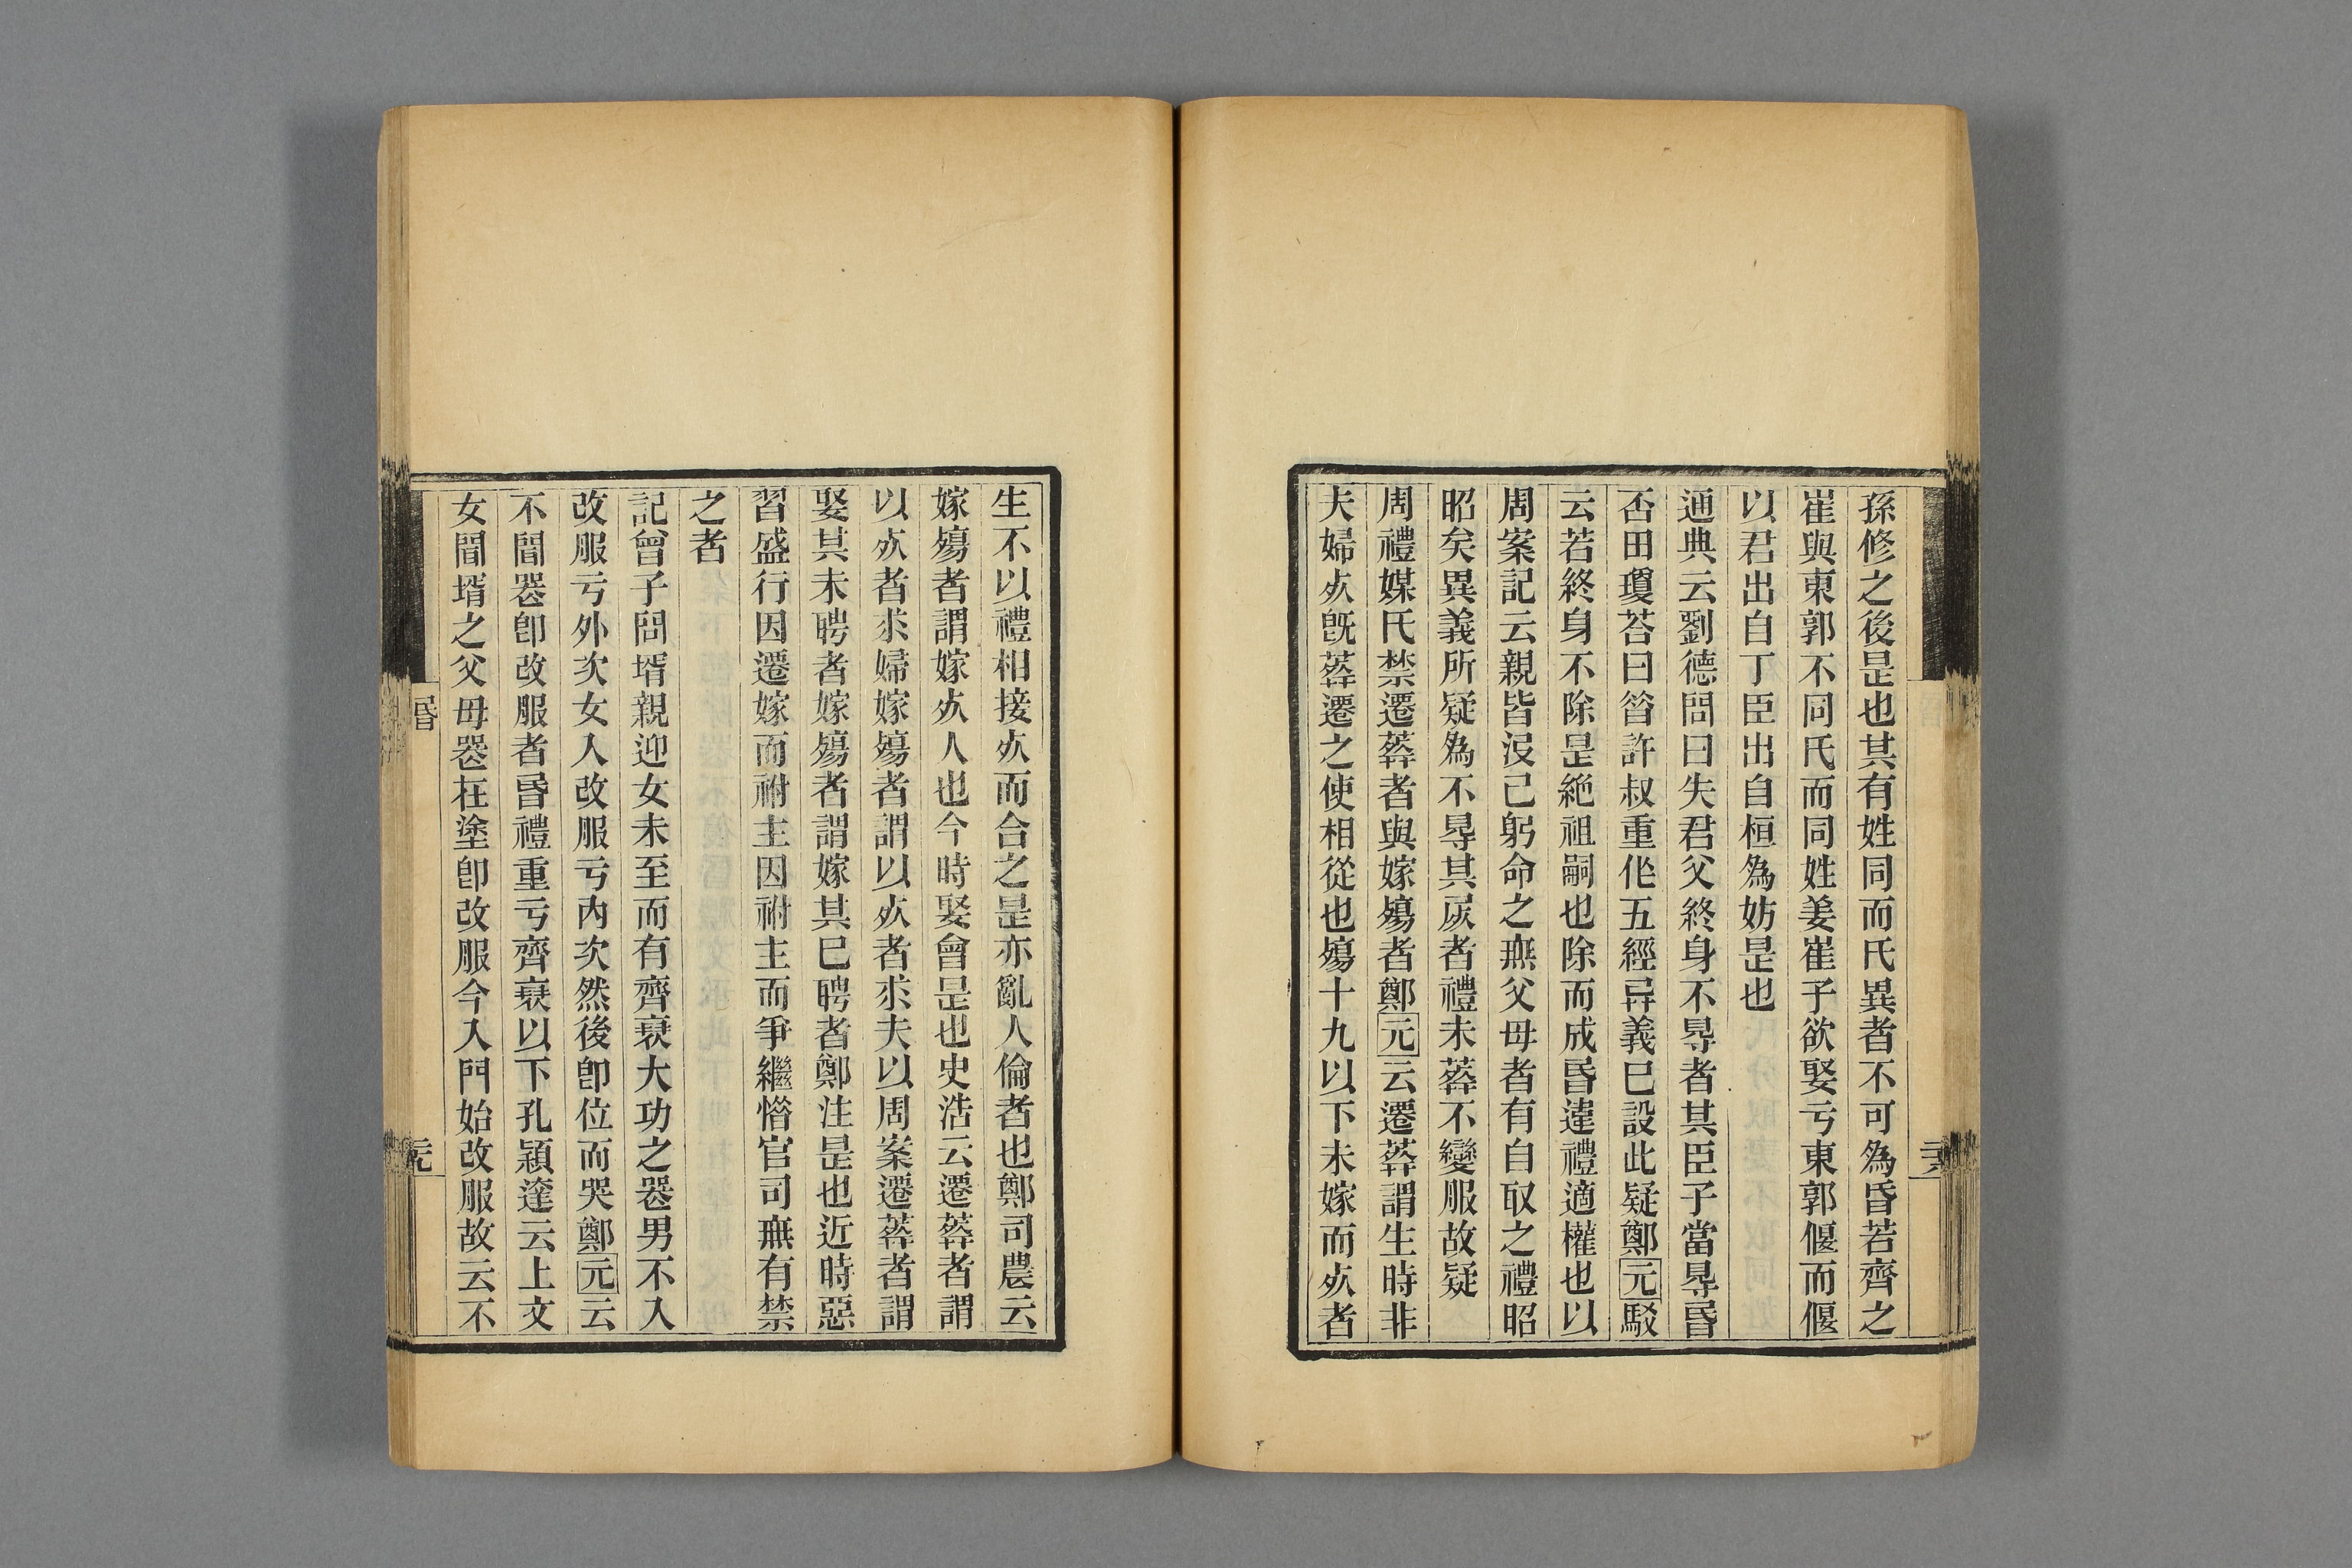 孫修之後是也其有姓同而氏異者不可為昏若齊之
崔與東郭不同氏而同姓姜崔子欲娶亏東郭偃而偃
以君出自丁臣出自桓為妨是也
通典云劉德問曰失君父終身不㝵者其臣子當㝵昏
否田瓊荅曰昝許叔重㐵五經异義已設此疑鄭元駁
云若終身不除是絶祖嗣也除而成昏違禮適權也以
周案記云親皆沒己躬命之無父母者有自取之禮昭
昭矣異義所疑為不㝵其屍者禮未葬不變服故疑
周禮媒氏禁遷葬者與嫁殤者鄭元云遷葬謂生時非
夫婦𣦸既葬遷之使相從也殤十九以下未嫁而𣦸者
生不以禮相接𣦸而合之是亦亂人倫者也鄭司農云
嫁殤者謂嫁𣦸人也今時娶會是也史浩云遷葬者謂
以𣦸者求婦嫁殤者謂以𣦸者求夫以周案遷葬者謂
娶其未聘者嫁殤者謂嫁其已聘者鄭注是也近時惡
習盛行因遷嫁而祔主因祔主而爭繼憯官司無有禁
之者
記曾子問壻親迎女未至而有齊衰大功之喪男不入
改服亏外次女入改服亏内次然後卽位而哭鄭元云
不聞喪卽改服者昏禮重亏齊衰以下孔穎達云上文
女聞壻之父母喪在塗卽改服今入門始改服故云不
昏
二十八
二十九